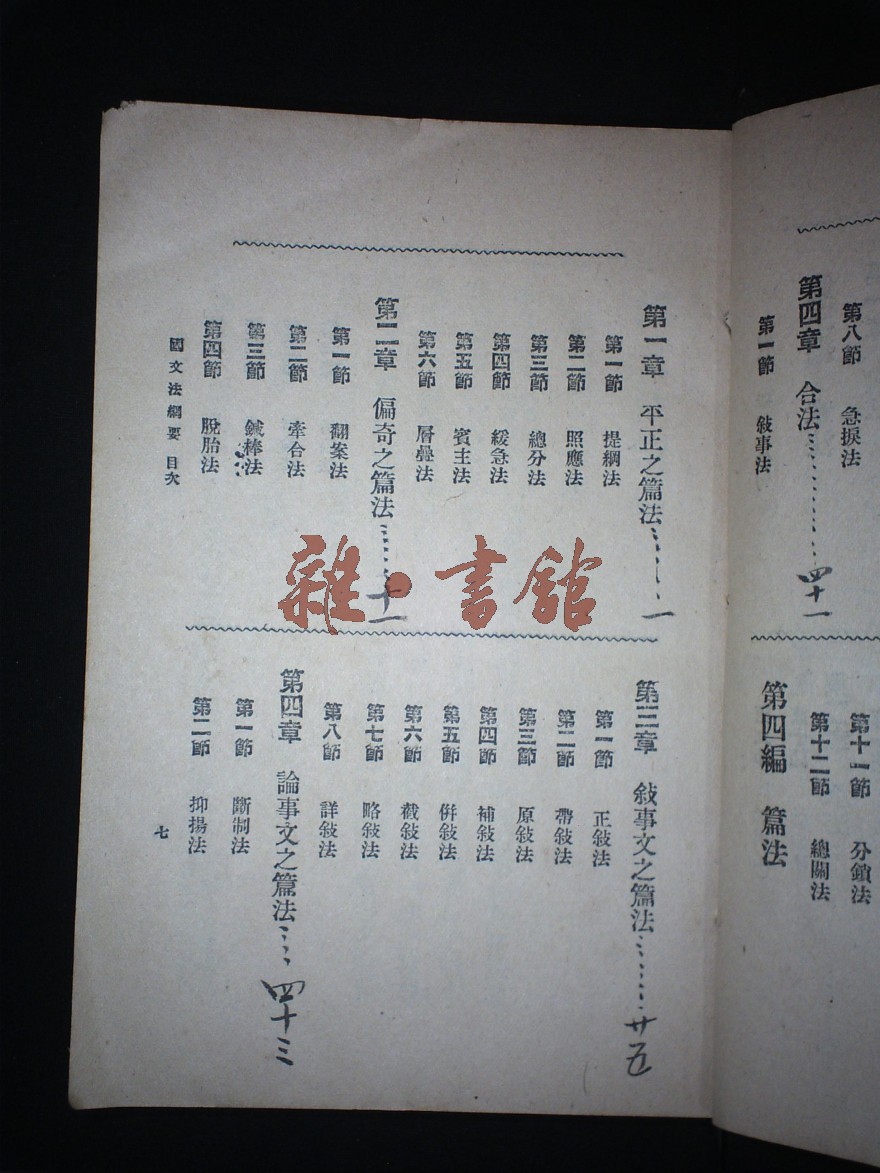 第八節　急捩法
第四章　合法……………四十一
第一節　敍事法
第十一節　分鎖法
第十二節　總關法
第四編　篇法
第一章　平正之篇法……一
第一節　提綱法
第二節　照應法
第三節　總分法
第四節　緩急法
第五節　賓主法
第六節　層疊法
第二章　偏奇之篇法……十一
第一節　翻案法
第二節　牽合法
第三節　鍼棒法
第四節　脫胎法
第三章　敍事文之篇法………廿五
第一節　正敍法
第二節　帶敍法
第三節　原敍法
第四節　補敍法
第五節　倂敍法
第六節　截敍法
第七節　略敍法
第八節　詳敍法
第四章　論事文之篇法……四十三
第一節　斷制法
第二節　抑揚法
國文法綱要　目次
七
雜·書館